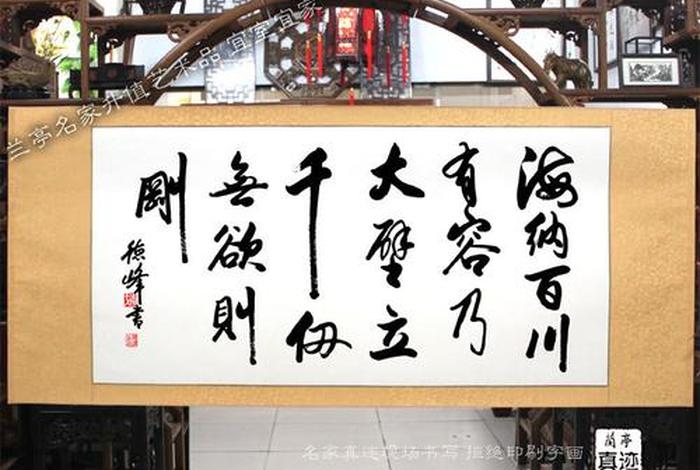 海纳百川
有容乃
大壁立
千仞
無欲則
剛
德峰书
兰亭名家升值艺术品 宜室宜家
名家真迹现场书写 拒绝印刷字画
蘭亭
真迹